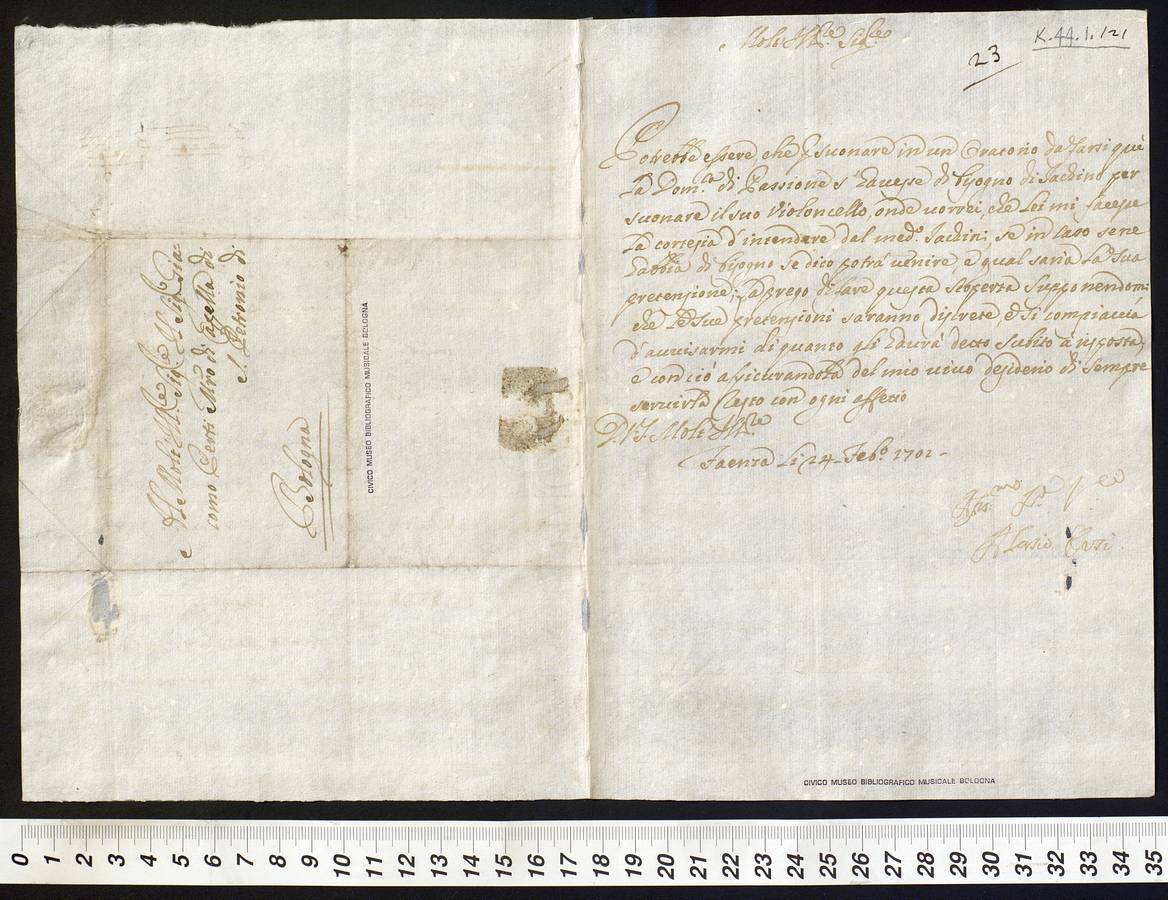 Molt Ill.re Sig.re
23
K.44.1.121
Potrebbe essere che p suonare in un Oratorio da farsi quì
la Dom.ca di Passione s'hauesse di bisogno di Jachino per
suonare il suo Violoncello, onde uorrei, che Lei mi facesse
la cortesia d'intendere dal med.o Jachini, se in caso se ne
habbia di bisogno se dico potrà uenire e qual saria la sua
pretensione; La prego di fare questa scoperta supponendomi
che le sue pretensioni saranno discrete, e si compiaccia
d'auuisarmi di quanto gli haurà detto subito à risposta,
e con ciò assicurandola del mio uiuo desiderio di sempre
seruirla resto con ogni affetto
D.V.S. Molt Ill.re
Faenza Li 24 Feb.o 1701
Al Molt Ill.re Sig.re Sig.re
como Perti Mro di Capella di
S. Petronio di
Bologna
CIVICO MUSEO BIBLIOGRAFICO MUSICALE BOLOGNA
CIVICO MUSEO BIBLIOGRAFICO MUSICALE BOLOGNA
0 1 2 3 4 5 6 7 8 9 10 11 12 13 14 15 16 17 18 19 20 21 22 23 24 25 26 27 28 29 30 31 32 33 34 35